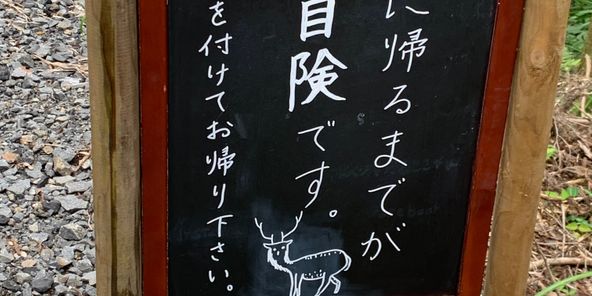 に帰るまでが
冒険です。
を付けてお帰り下さい。